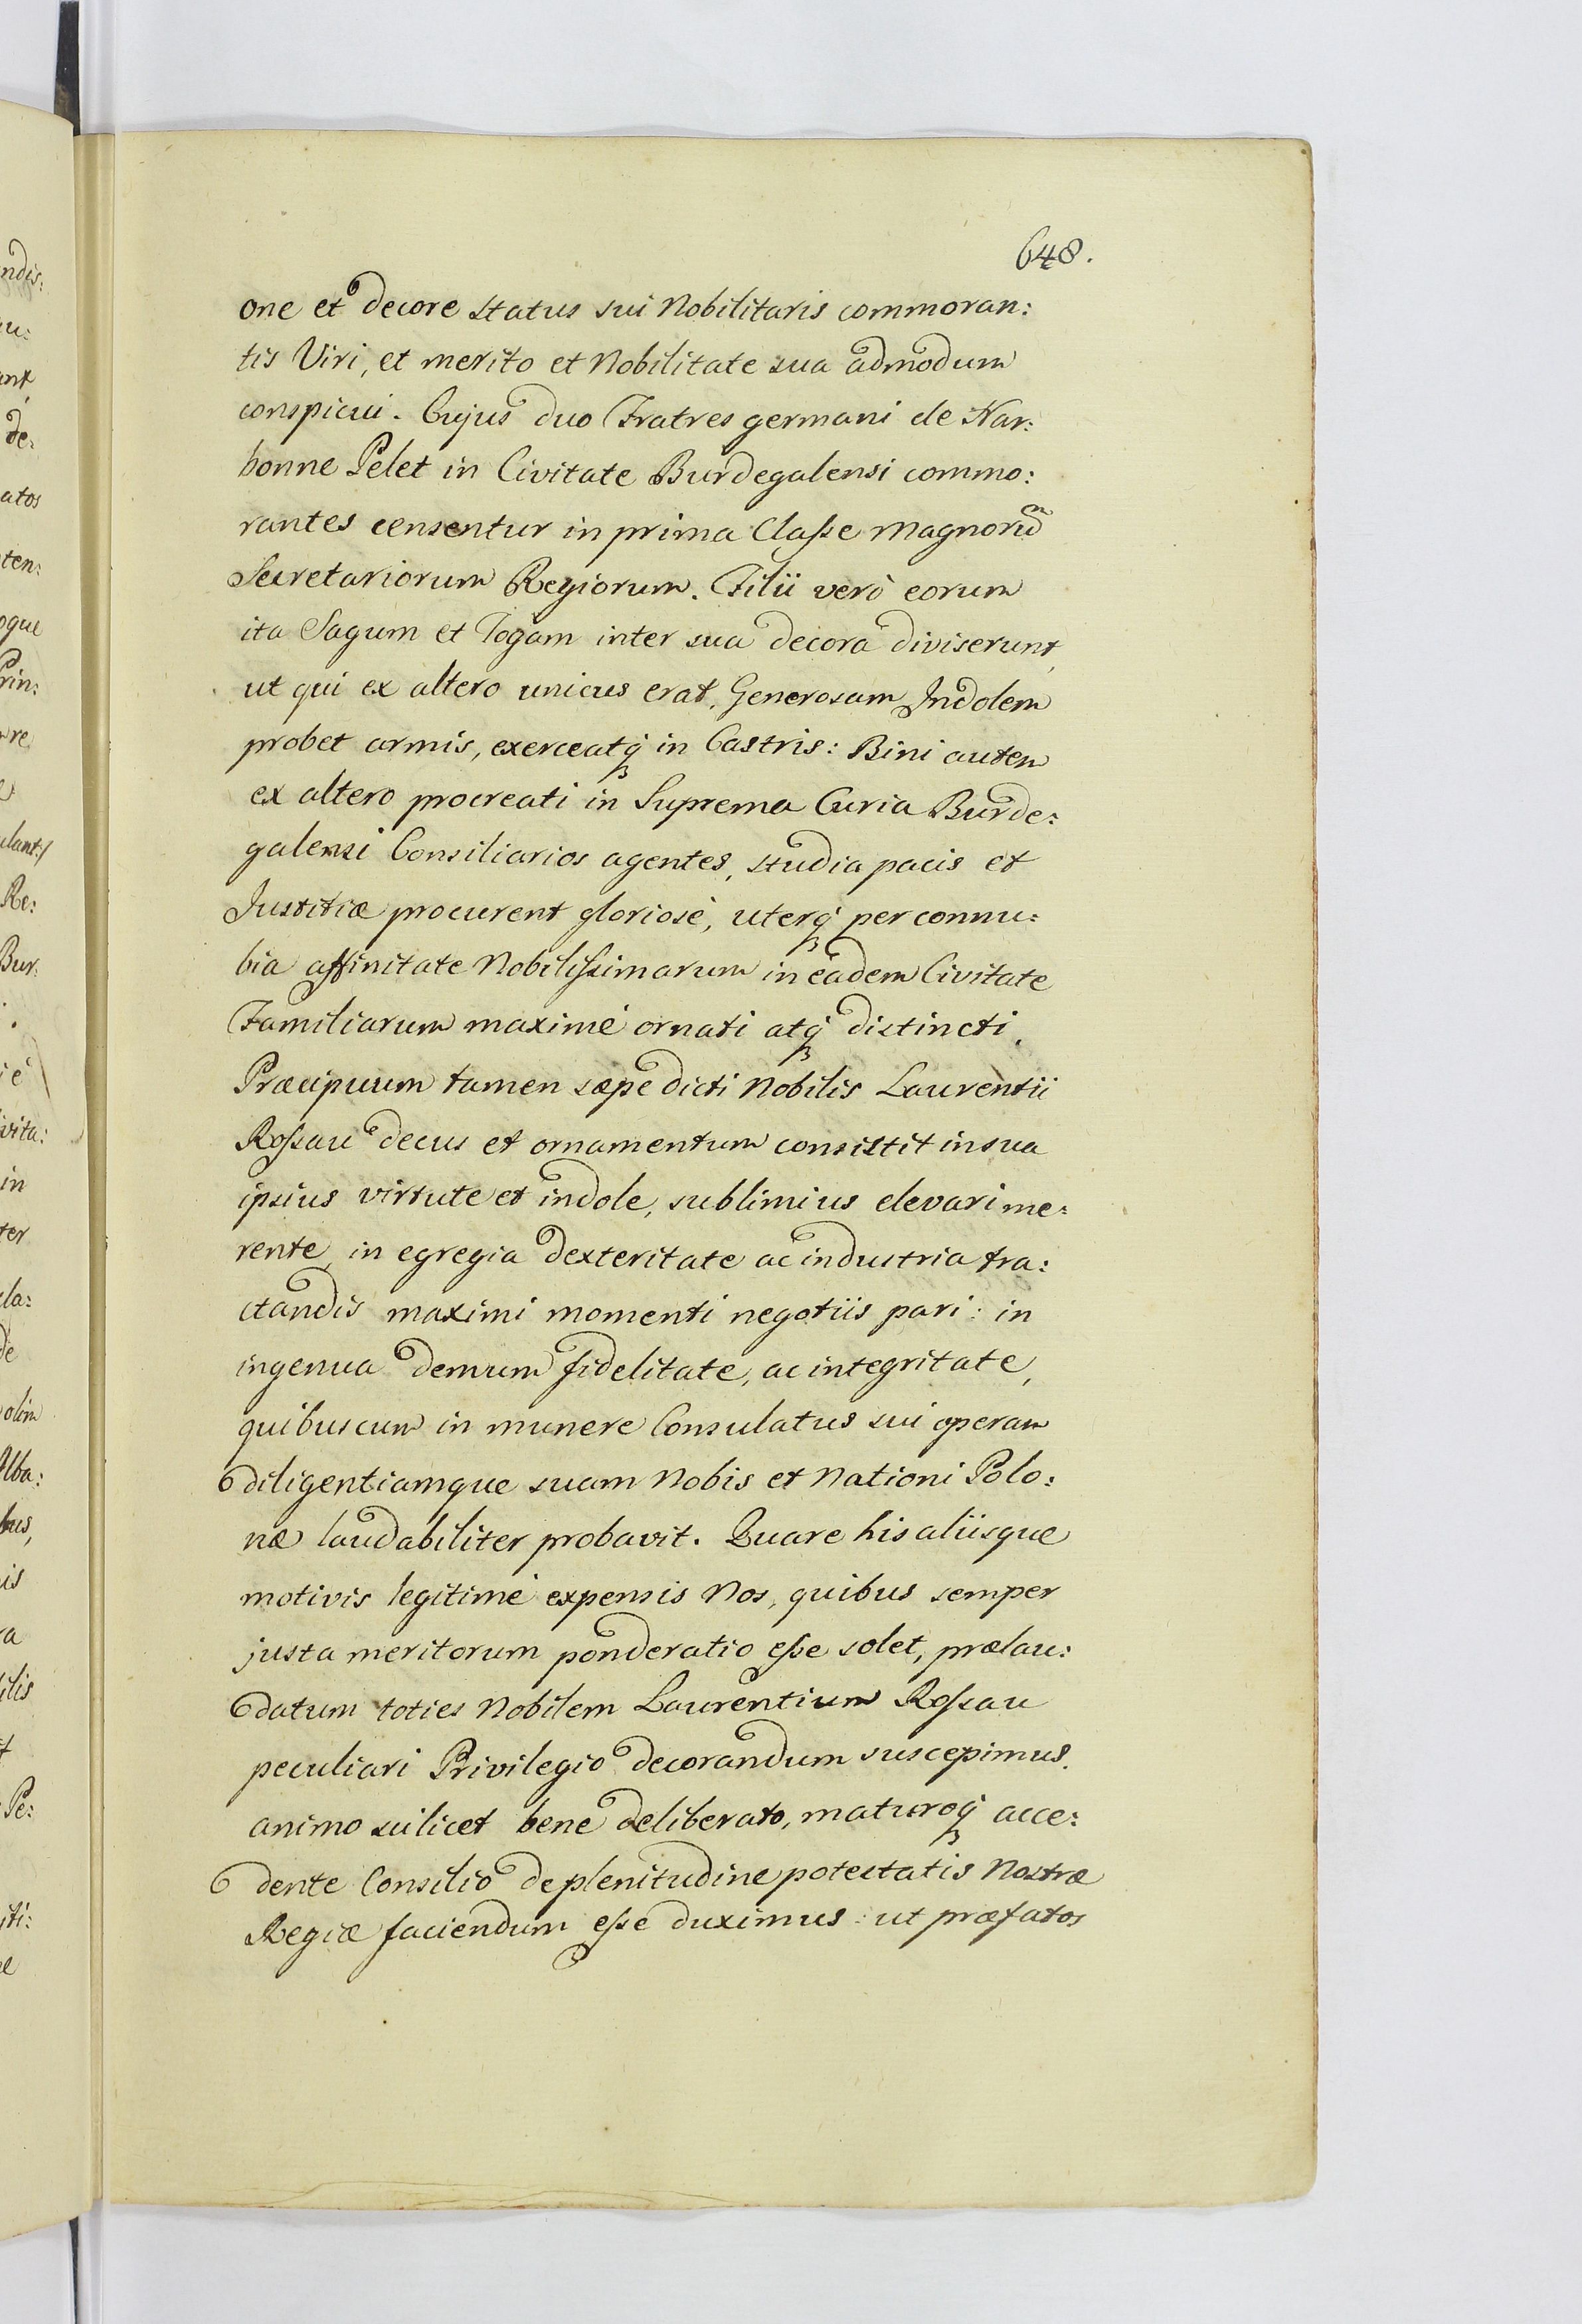 648.
one et decore status sui Nobilitaris commoran:
tis Viri, et merito et Nobilitate sua admodum
conspicui. Cujus duo Fratres germani de Nar:
bonne Pelet in Civitate Burdegalensi commo:
rantes censentur in prima Claſse Magnorũm
Secretariorum Regiorum. Filii verò eorum
ita Sagum et Togam inter sua decora diviserunt,
ut qui ex altero unicus erat, Generosam Indolem
probet armis, exerceatq́ in Castris: Bini autem
ex altero procreati in Suprema Curia Burde:
galensi Consiliarios agentes, studia pacis et
Justitiæ procurent gloriosè, uterq́ per connu:
bia affinitate Nobiliſsimarum in eadem Civitate
Familiarum maximè ornati atq́ distincti.
Præcipuum tamen sæpe dicti Nobilis Laurentii
Roſsau decus et ornamentum consistit in sua
ipsius virtute et indole, sublimius elevari me:
rente, in egregia dexteritate ac industria tra:
ctandis maximi momenti negotiis pari: in
ingenua demum fidelitate, ac integritate,
quibuscum in munere Consulatus sui operam
diligentiamque suam Nobis et Nationi Polo:
næ laudabiliter probavit. Quare his aliisque
motivis legitimè expensis Nos, quibus semper
justa meritorum ponderatio eſse solet, prælau:
datum toties Nobilem Laurentium Roſsau
peculiari Privilegio decorandum suscepimus.
animo scilicet bene deliberato, maturoq́ acce:
dente Consilio de plenitudine potestatis Nostræ
Regiæ faciendum eſse duximus: ut præfatos
ndis:
u:
ant,
de:
atos
ten:
oque
Prin:
re
ulant:/
Re:
Bur:
ie
vita:
in
ter
la:
de
olim
Alba:
bus,
is
ra
ilis
t
Pe:
iti:
e